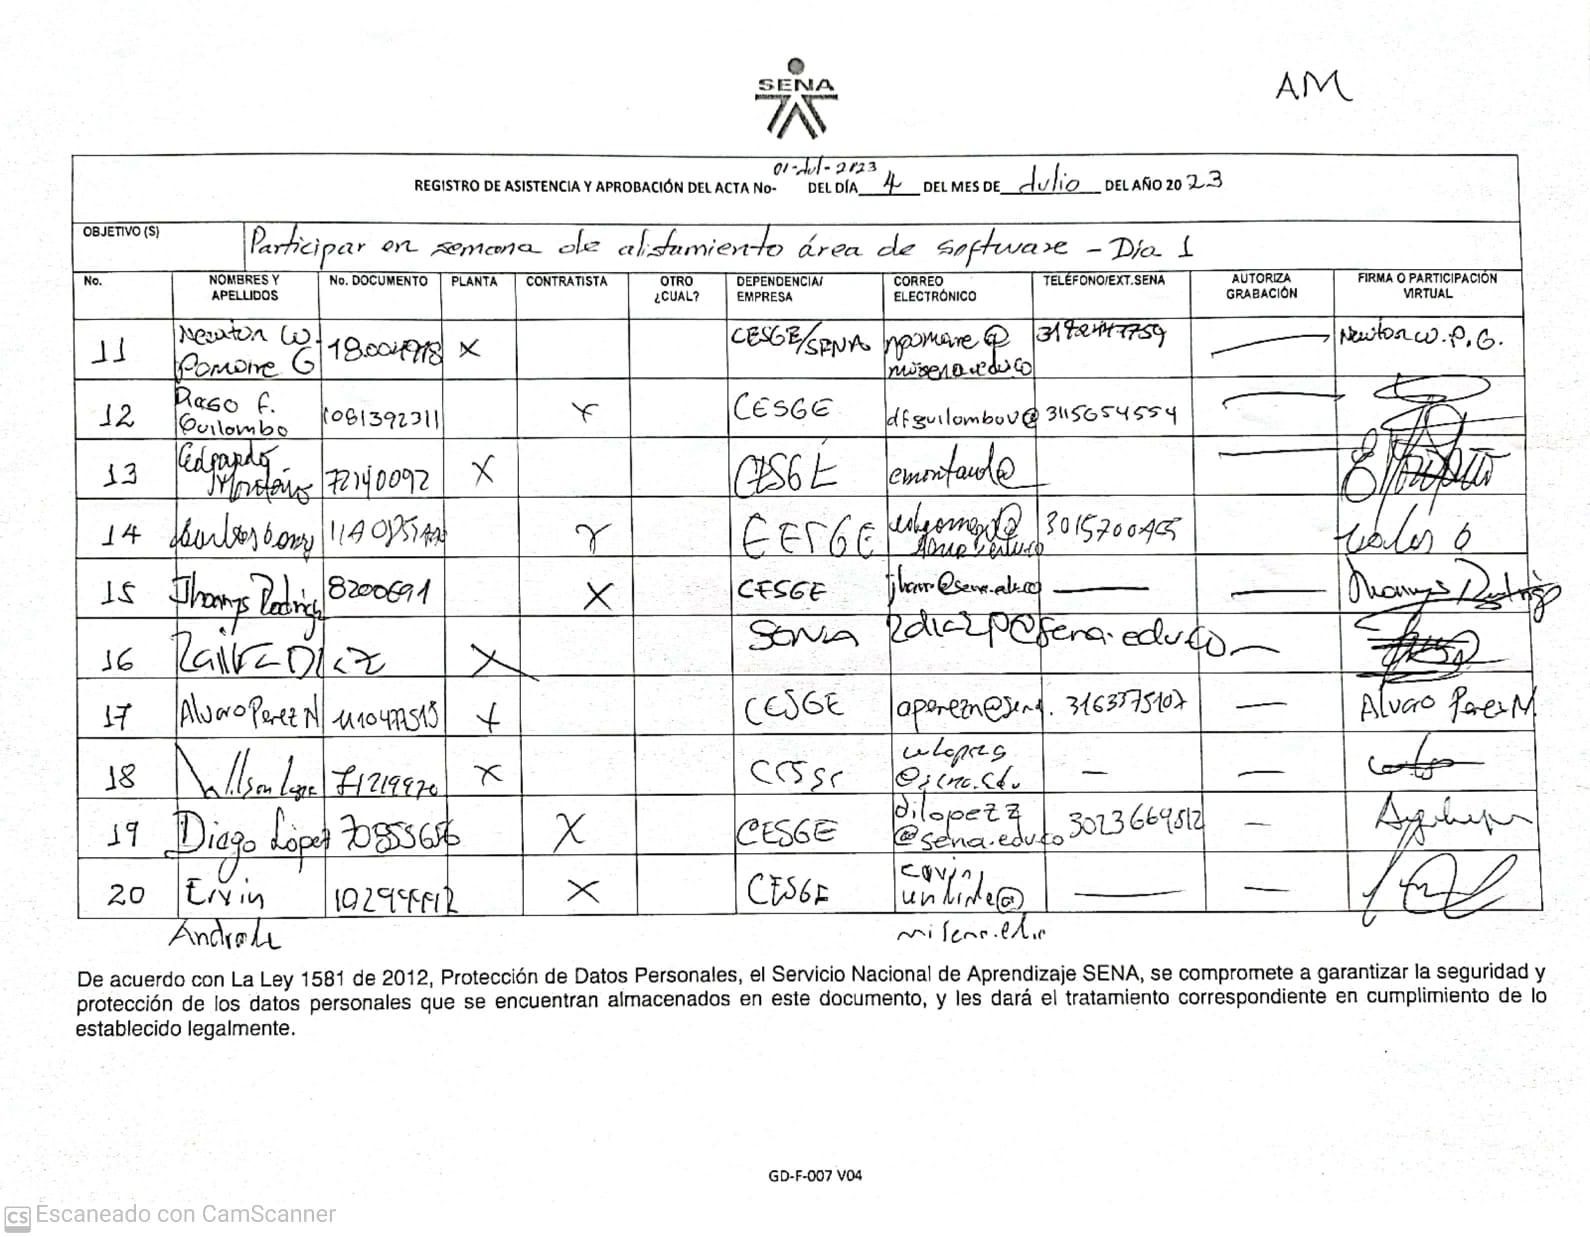 SENA
AM
01-Jul-2023
REGISTRO DE ASISTENCIA Y APROBACIÓN DEL ACTA No- DEL DÍA 4 DEL MES DE Julio DEL AÑO 2023
OBJETIVO (S) Participar en semana de alistamiento área de software - Día 1
No. NOMBRES Y APELLIDOS No. DOCUMENTO PLANTA CONTRATISTA OTRO ¿CUAL? DEPENDENCIA/ EMPRESA CORREO ELECTRÓNICO TELÉFONO/EXT.SENA AUTORIZA GRABACIÓN FIRMA O PARTICIPACIÓN VIRTUAL
11 Newton W. Pomare G X CESGE/SENA npomare@ misena.edu.co Newton W. P. G.
12 F. Quilombo 1081392311 X CESGE dfquilombov@ 3115654554
13 Edgardo Montaño 72140092 X CESGE emontand@
14 X CESGE
15 Jhonys Rodrig 8200691 X CESGE — — Jhonys
16 X SENA zdiazp@sena.edu.co —
17 Alvaro Perez N X CESGE aperezn@sena. 3163375107 — Alvaro Perez N
18 Wilson 71219970 X — —
19 Diego López 70853656 X CESGE dilopezz @sena.edu.co 3023669512 —
20 Ervin Andrade X CESGE — —
De acuerdo con La Ley 1581 de 2012, Protección de Datos Personales, el Servicio Nacional de Aprendizaje SENA, se compromete a garantizar la seguridad y
protección de los datos personales que se encuentran almacenados en este documento, y les dará el tratamiento correspondiente en cumplimiento de lo
establecido legalmente.
GD-F-007 V04
CS Escaneado con CamScanner